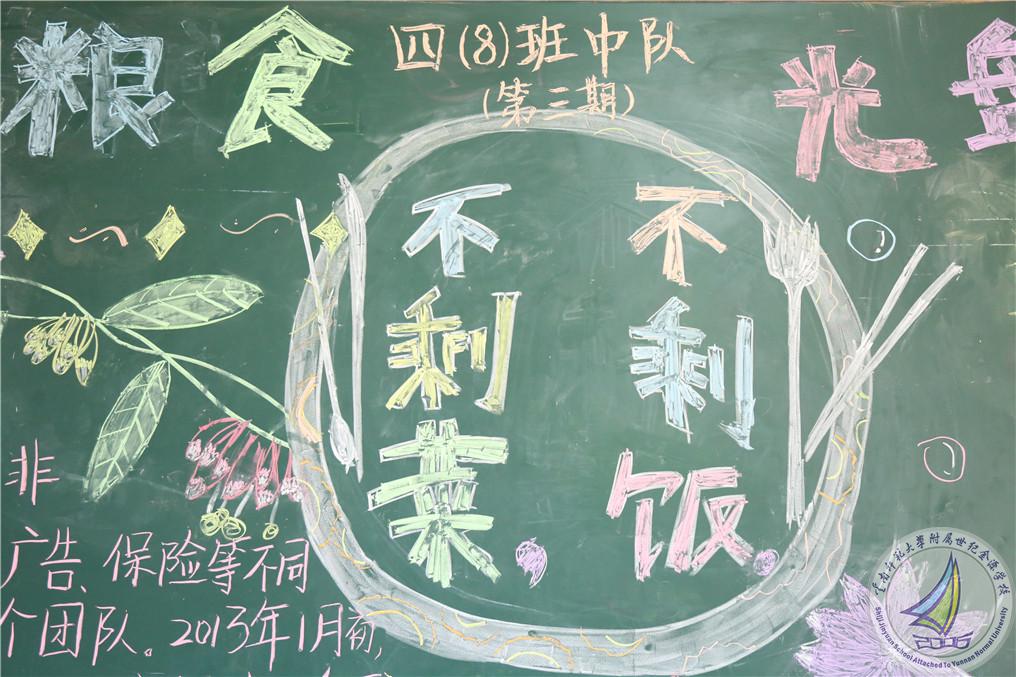 四(8)班中队
(第三期)
粮食
光盘
不剩饭
不剩菜
非
广告、保险等不同
个团队。2013年1月
云南师范大學附属世纪金源学校
Shiji Jinyuan School Attached To Yunnan Normal University